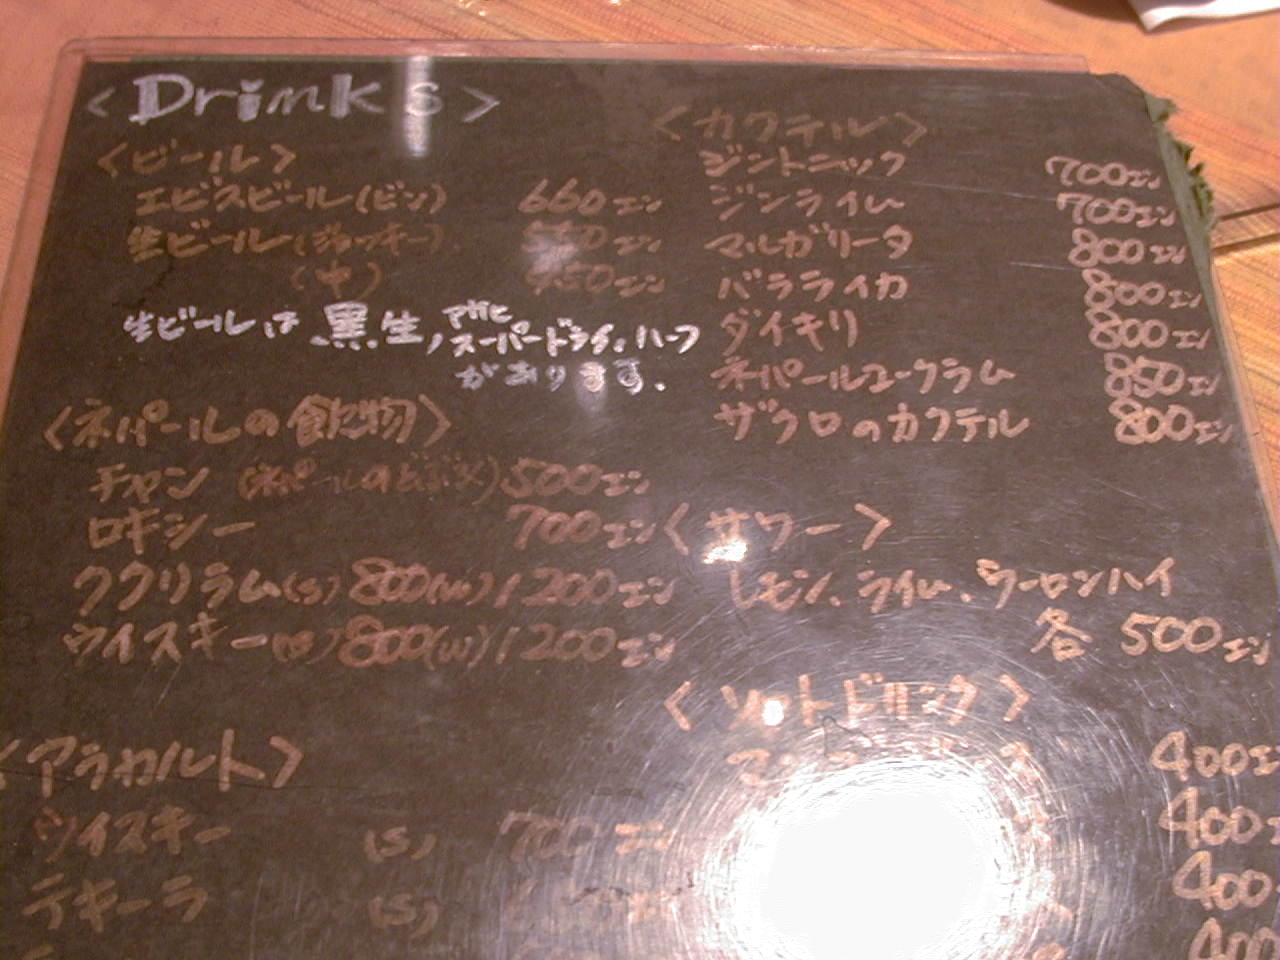 <Drinks>
<ビール>
エビスビール(ビン) 660エン
生ビール(ジョッキー) エン
(中) 450エン
生ビールは 黒生, アサヒスーパードライ, ハーフ
があります.
<ネパールの飲物>
チャン (ネパールのどぶろく) 500エン
ロキシー 700エン
ククリラム(S) 800(W) 1200エン
ウイスキー(S) 800(W) 1200エン
<アラカルト>
ウイスキー (S) 700エン
テキーラ (S)
<カクテル>
ジントニック 700エン
ジンライム 700エン
マルガリータ 800エン
バラライカ 800エン
ダイキリ 800エン
ネパールユークラム 850エン
ザクロのカクテル 800エン
<サワー>
レモン、ライム、ウーロンハイ
各 500エン
<ソフトドリンク>
400エ
400
400
400